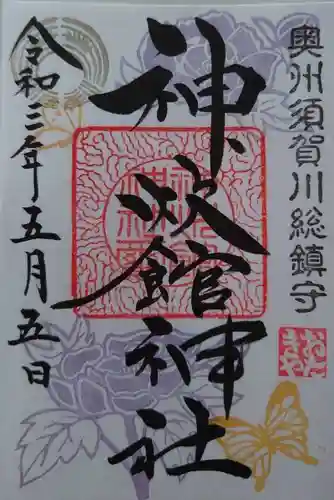 奥州須賀川総鎮守
神炊館神社
令和三年五月五日